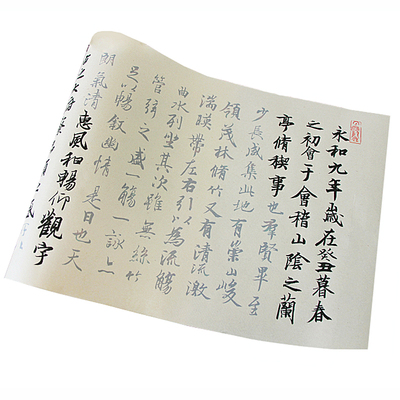 永和九年歲在癸丑暮春
之初會于會稽山陰之蘭
亭脩稧事也羣賢畢至
少長咸集此地有崇山峻
領茂林脩竹又有清流激
湍暎帶左右引以為流觴
曲水列坐其次雖無絲竹
管弦之盛一觴一詠亦
足以暢敘幽情是日也天
朗氣清惠風和暢仰觀宇